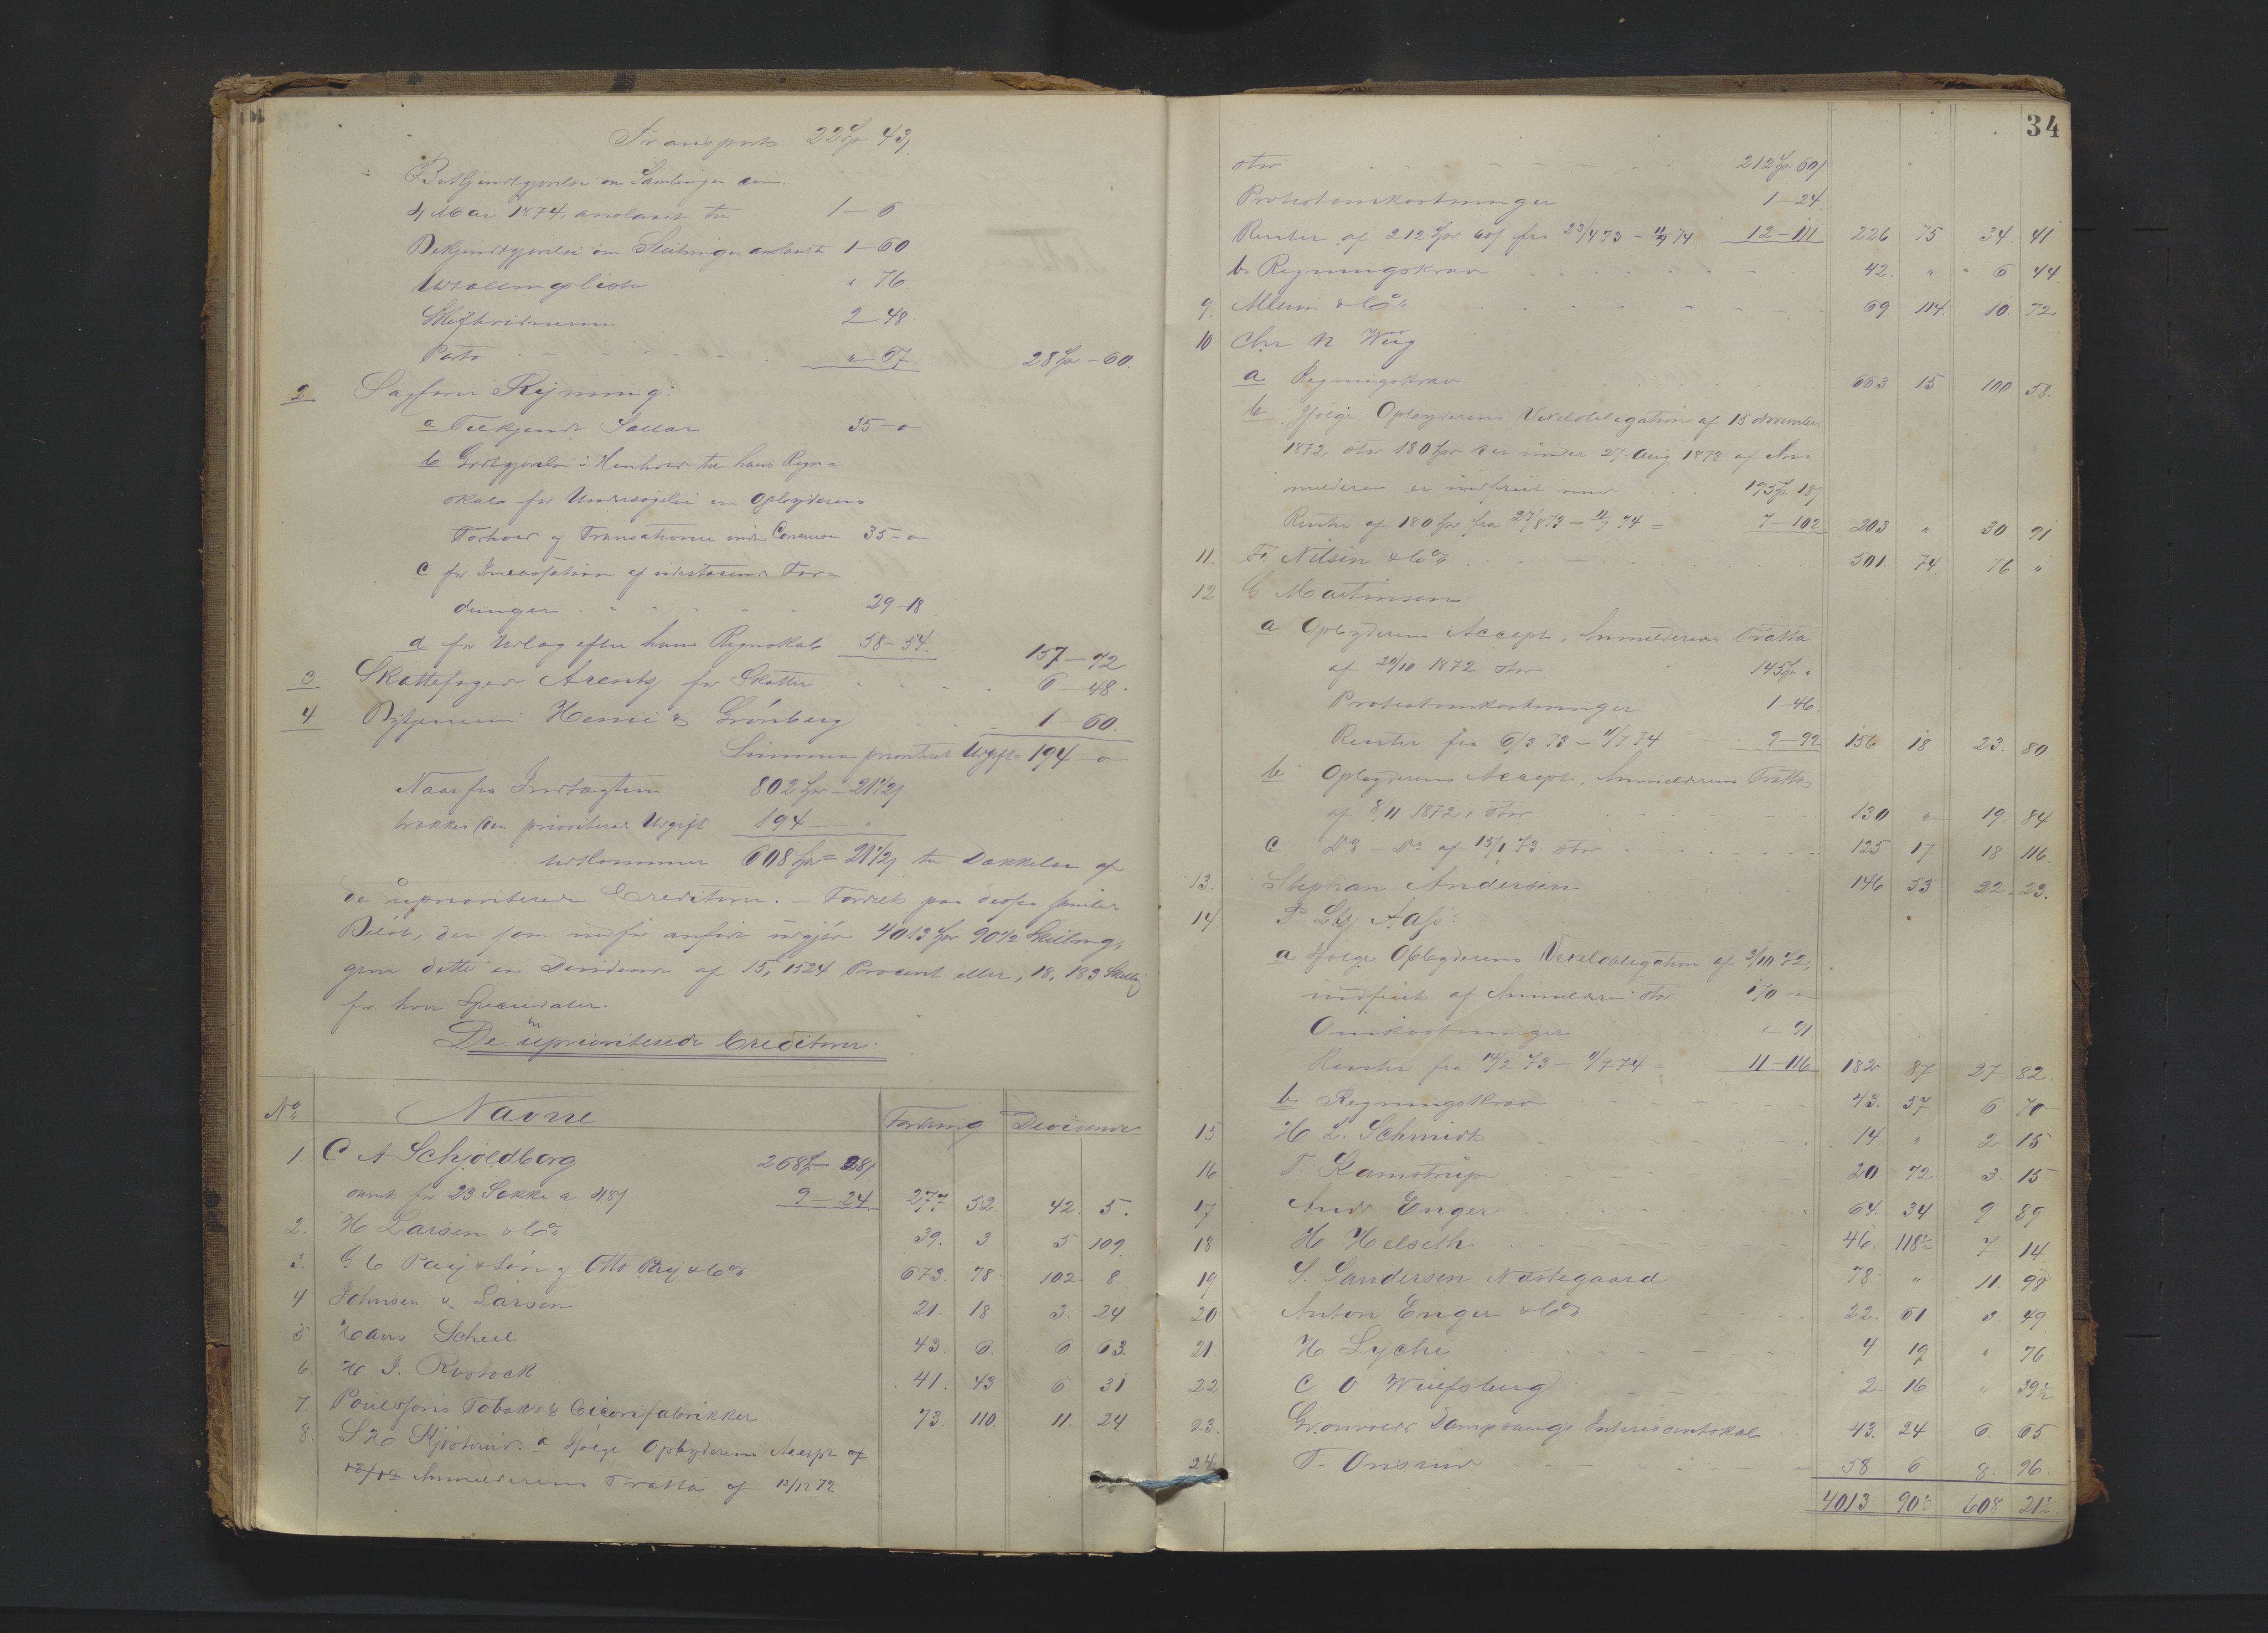 Transport 22 Spr 43 ß
Bekjendtgjørelse om Samlingen den
4 Mai 1874, anslaaet til 1 - 6
Bekjendtgjørelse om Slutningen anslaaet 1 - 60
Udtalingslisten " 76
Skiftevidnerne 2 48
Porto " - 67 28 Spr - 60
2 Sagfører Rejning:
a Tilkjendt Sallar 35 - "
b Godtgjørelse i Henhold til hans Regn=
skab for Undersøgelse om Opbyderens
Forhold og Transationer under Concursen 35 - "
c for Incassation af udestaaende For=
dringer 29 - 18
d for Udlæg efter hans Regnskab 58 - 54 157 - 72
3 Skattefoged Arentz for Skatter 6 - 48
4 Pigejenerne Hemi & Grønberg 1 - 60
Summa prioriteret Udgift = 194 - "
Naar fra Indtægten 802 Spr - 21 1/2 ß
trækkes den prioriterede Udgift 194 - "
udkommer 608 Spr = 21 1/2 ß til Dækkelse af
de uprioriterede Creditorer. - Fordelt paa disses samlede
Beløb, der som nedfor anført udgjør 4013 Spr 90 1/2 Skilling,
giver dette en Dividende af 15,1524 Procent eller, 18,183 Skilling
for hver Speciedaler.
De uprioriterede Creditorer
No Navne Fordring Dividende
1. C A Schjoldborg 268 Spr - 28 ß
samt for 23 Sække a 48 ß 9 - 24 277 52 42 5
2. H Larsen & Co 39 3 5 109
3. G C Paij & Søn og Otto Paij & Co 673 78 102 8
4 Johnsen & Larsen 21 18 3 24
5 Hans Scheel 43 6 6 63
6 H J. Rostock 41 43 6 31
7. Pouelssons Tobaks & Ciccorifabrikker 73 110 11 24
8. S H Kjøsterud. a Ifølge Opbyderens Accept af
12/12 Anmelderens Tratta af 12/12 72
34
stor 212 Spr 60 ß
Protestomkostninger 1 - 24
Renter af 212 Spr 60 ß fra 23/4 73 - 11/7 74 12 - 111 226 75 34 41
b. Regningskrav 42 " 6 44
9. Allum & Co 69 114 10 72
10 Chr N Wiig
a Regningskrav 663 15 100 58
b. Ifølge Opbyderens Vexelobligation af 15 November
1872 stor 180 Spr der under 27. Aug 1873 af An=
melderen er indfriet med 195 Spr 18 ß
Renter af 180 Spr fra 27/8 73 - 11/7 74 = 7 - 102 203 " 30 91
11. Fr. Nilsen & Co 501 74 76 "
12 G Martinsen
a Opbyderens Accept, Anmelderens Tratta
af 29/10 1872 stor 145 Spr "
Protestomkostninger 1 - 46
Renter fra 6/3 73 - 11/7 74 9 - 92 156 18 23 80
b Opbyderens Accept, Anmelderens Tratta
af 8/11 1872, stor 130 " 19 84
c Do - Do af 15/1 73 stor 125 17 18 116
13. Stephan Andersen 146 53 22 23
14 P. Ltz Aass:
a Ifølge Opbyderens Vexelobligation af 3/10 72,
indfriet af Anmelderen stor 170 - "
Omkostninger " 91
Renter fra 14/2 73 - 11/7 74 = 11 - 116 182 87 27 82
b. Regningskrav 43 57 6 70
15 H L. Schmidt 14 " 2 15
16 T. Kamstrup 20 72 3 15
17 Andr Enger 64 34 9 89
18 H Helseth 46 118 1/2 7 14
19 S. Sandersen Nordegaard 78 " 11 98
20 Anton Enger & Co 22 61 3 49
21 H Lyche 4 19 " 76
22 C O Wulfsberg 2 16 " 39 1/2
23. Grønvolds Dampsaugs Interessentskab 43 24 6 65
24 T. Onsrud 58 6 8 96
4013 90 1/2 608 21 1/2